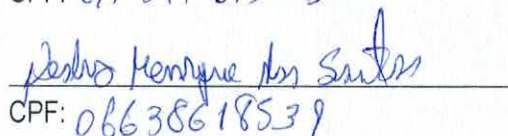 CPF:
Pedro Henrique dos Santos
CPF: 06638618539